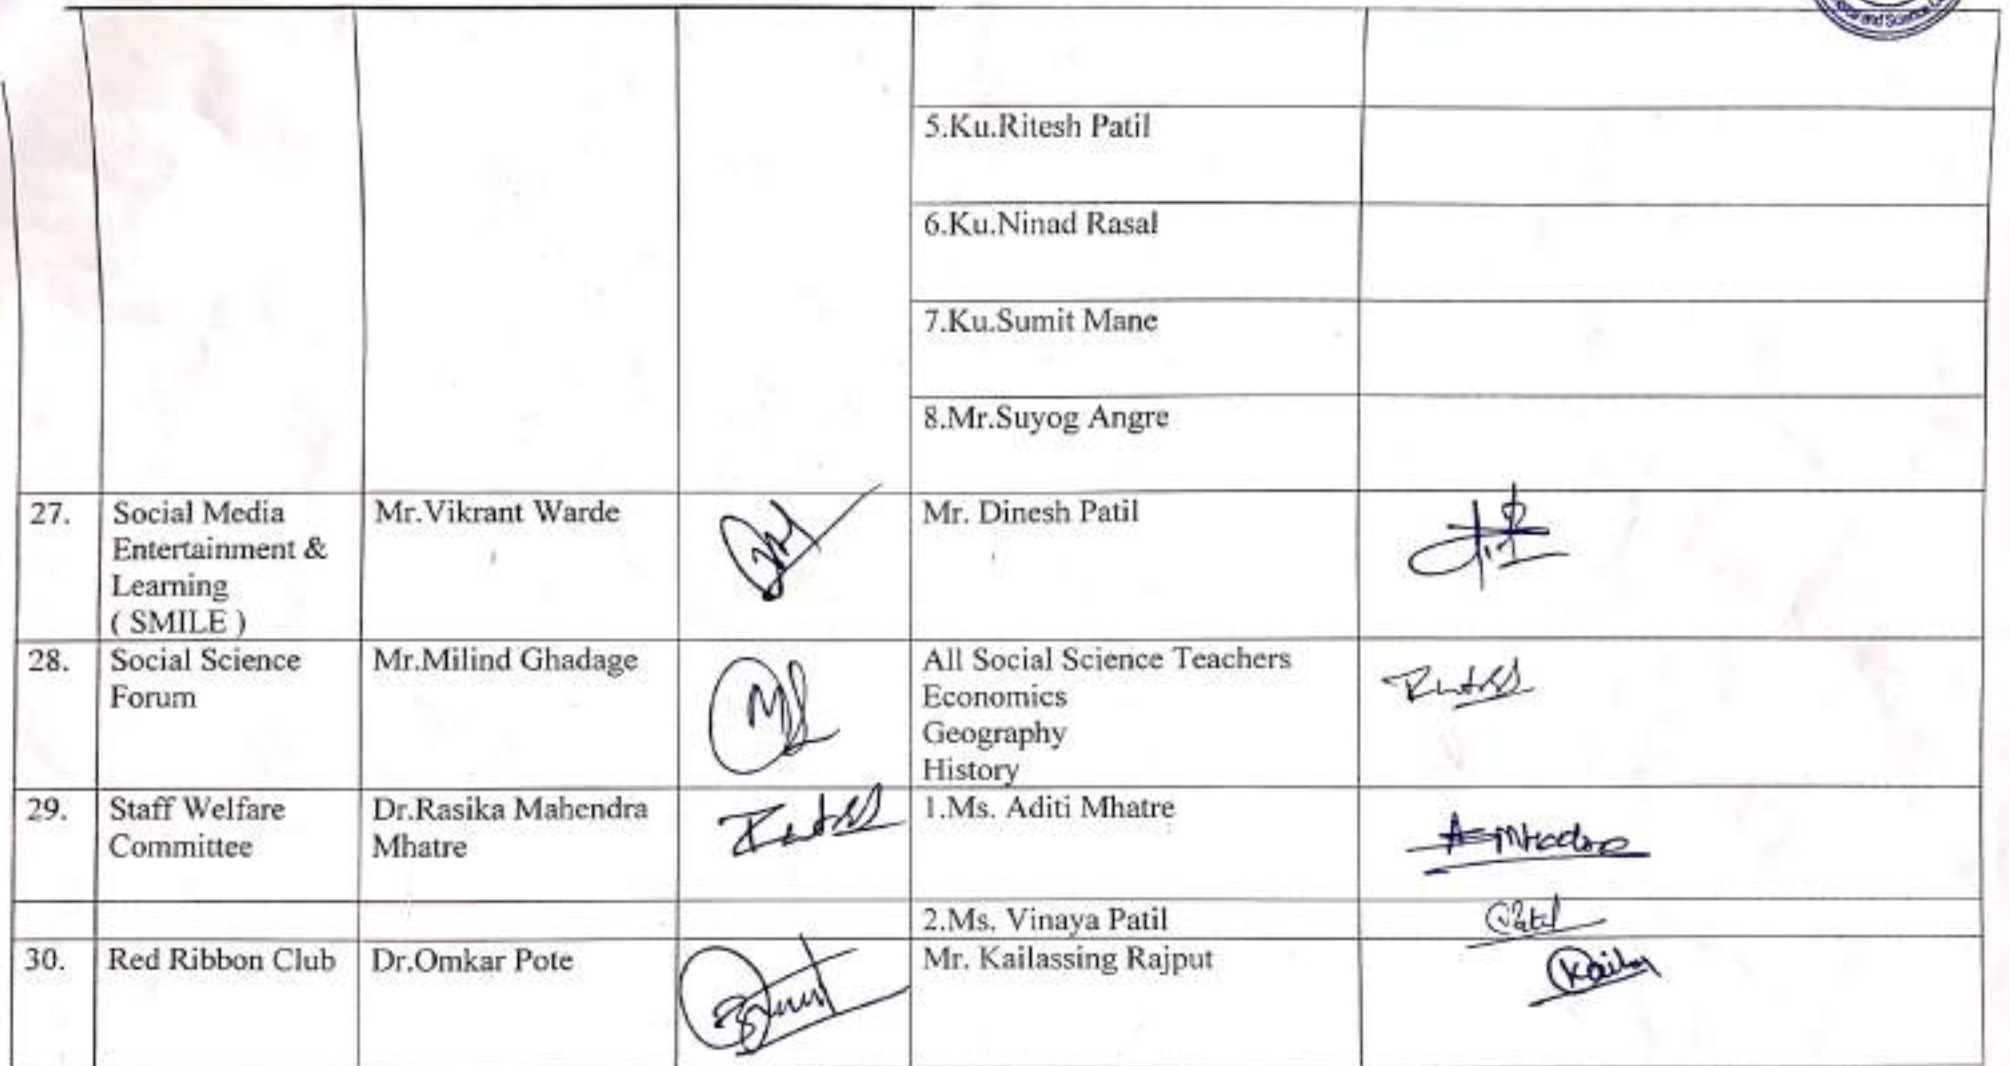 and Science
5.Ku.Ritesh Patil
6.Ku.Ninad Rasal
7.Ku.Sumit Mane
8.Mr.Suyog Angre
27.
Social Media
Entertainment &
Learning
( SMILE )
Mr.Vikrant Warde
Mr. Dinesh Patil
28.
Social Science
Forum
Mr.Milind Ghadage
All Social Science Teachers
Economics
Geography
History
29.
Staff Welfare
Committee
Dr.Rasika Mahendra
Mhatre
1.Ms. Aditi Mhatre
2.Ms. Vinaya Patil
30.
Red Ribbon Club
Dr.Omkar Pote
Mr. Kailassing Rajput